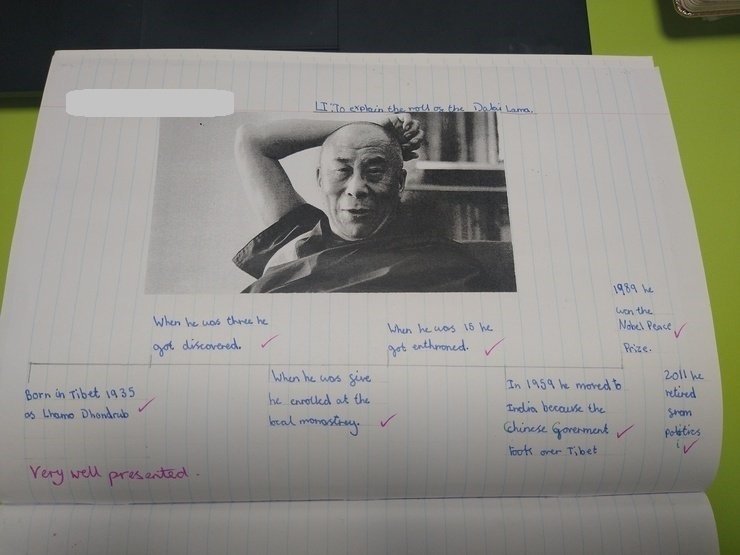 LI: To explain the roll of the Dalai Lama.
1989 he
won the
Nobel Peace
Prize.
When he was three he
got discovered.
When he was 15 he
got enthroned.
Born in Tibet 1935
as Lhamo Dhondrub
When he was five
he enrolled at the
local monastrey.
In 1959 he moved to
India because the
Chinese Goverment
took over Tibet
2011 he
retired
from
Politics
Very well presented.